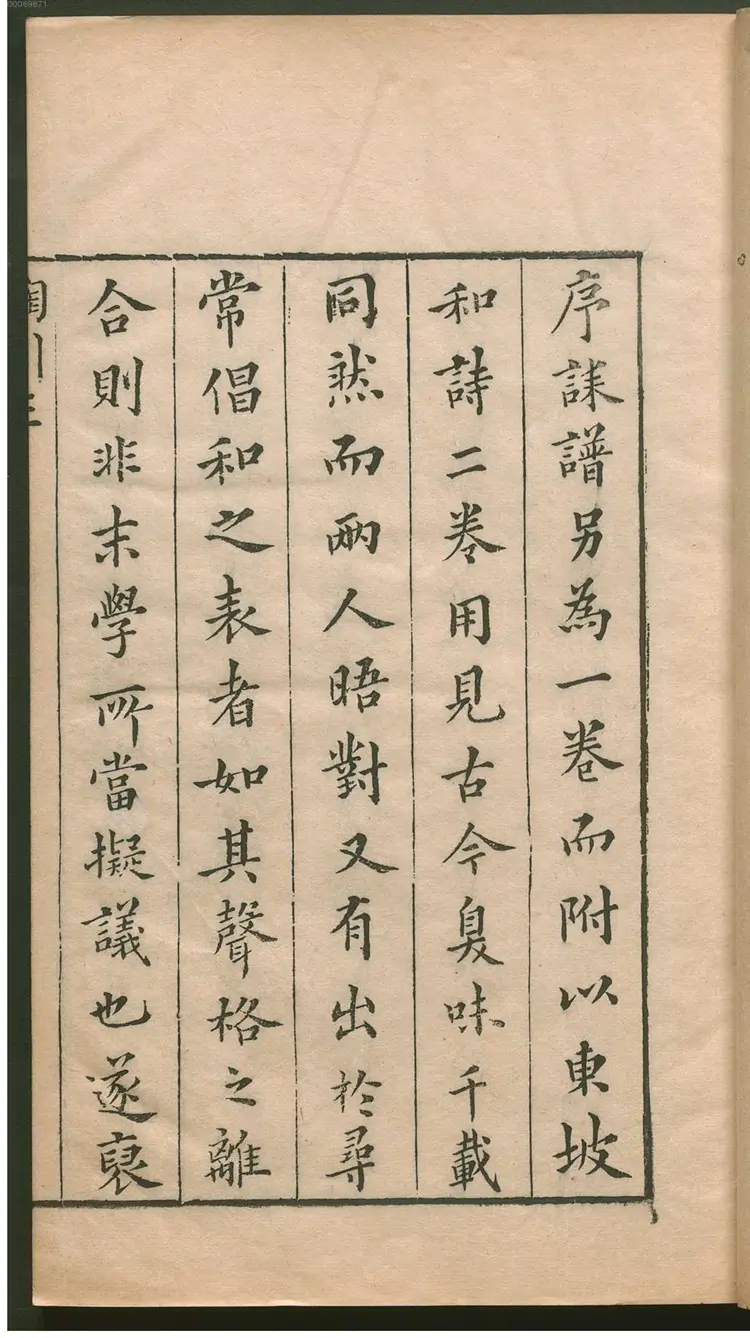 00069871
序誄譜另為一卷而附以東坡
和詩二卷用見古今臭味千載
同然而兩人晤對又有出於尋
常倡和之表者如其聲格之離
合則非末學所當擬議也遂裒